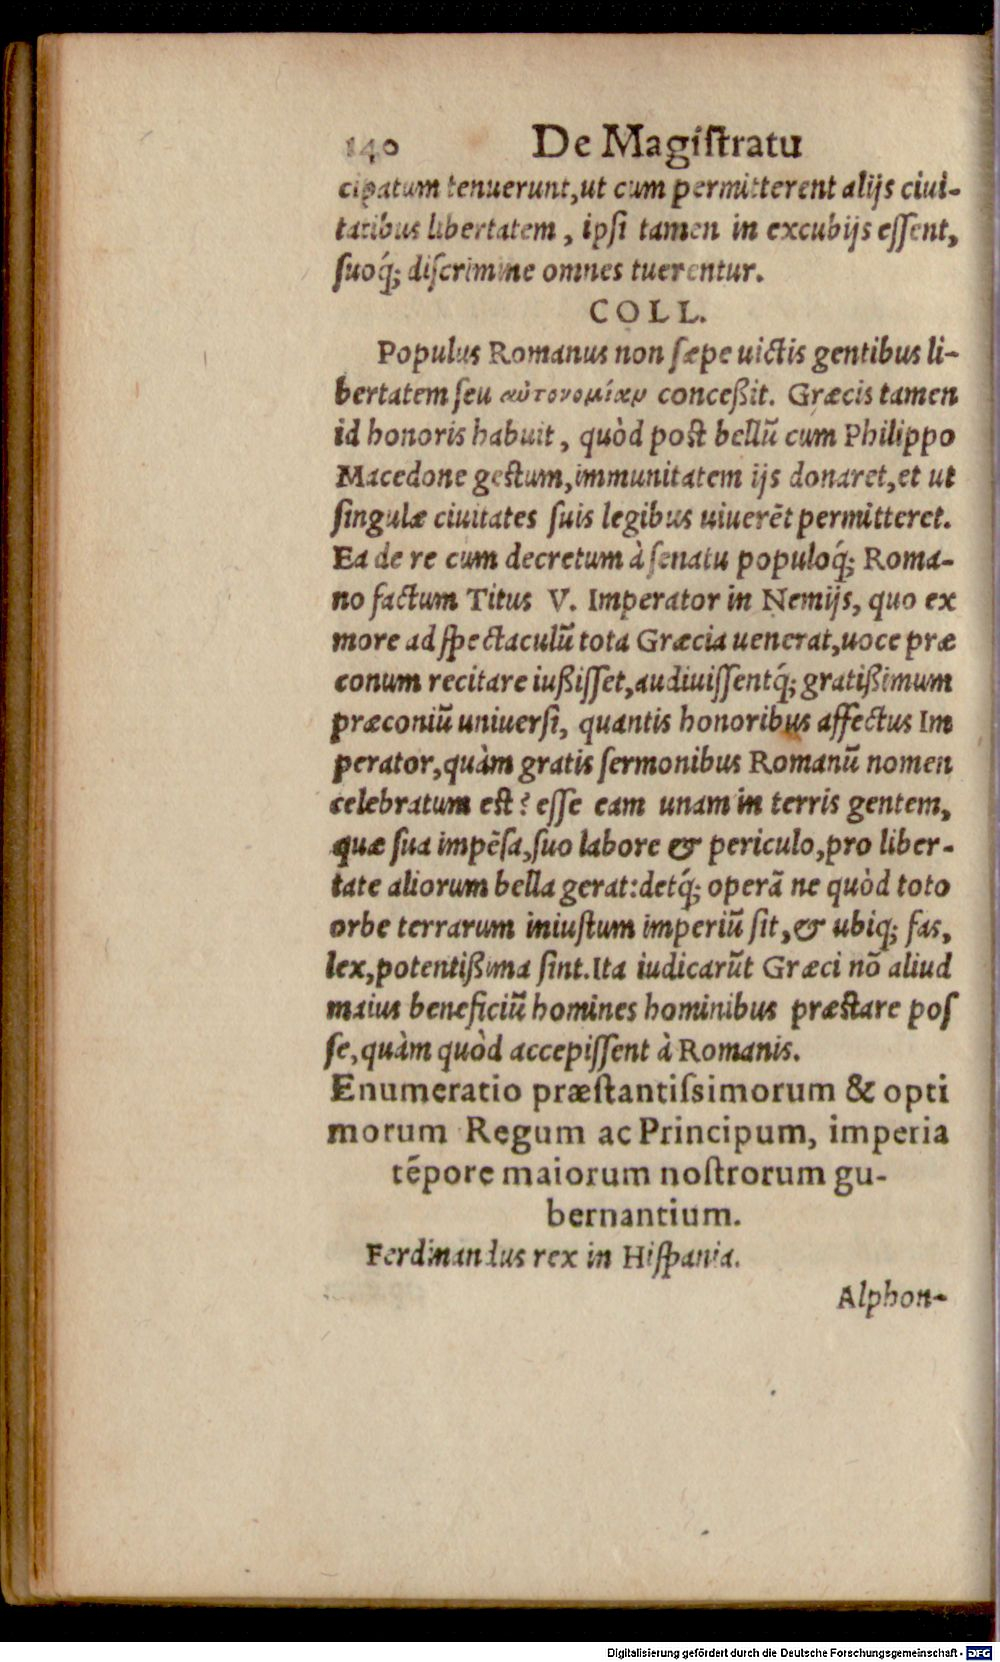 140 De Magiſtratu
cipatum tenuerunt,ut cum permitterent alijs ciui-
tatibus libertatem , ipſi tamen in excubijs eſſent,
ſuoq́; diſcrimine omnes tuerentur.
COLL.
Populus Romanus non ſæpe uictis gentibus li-
bertatem ſeu αὐτονομίαν conceßit. Græcis tamen
id honoris habuit , quòd poſt bellū cum Philippo
Macedone geſtum,immunitatem ijs donaret,et ut
ſingulæ ciuitates ſuis legibus uiuerēt permitteret.
Ea de re cum decretum à ſenatu populoq́; Roma-
no factum Titus V. Imperator in Nemijs, quo ex
more ad ſpectaculū tota Græcia uenerat,uoce præ
conum recitare iußiſſet,audiuiſſentq́; gratißimum
præconiū uniuerſi, quantis honoribus affectus Im
perator,quàm gratis ſermonibus Romanū nomen
celebratum eſt? eſſe eam unam in terris gentem,
quæ ſua impēſa,ſuo labore & periculo,pro liber-
tate aliorum bella gerat:detq́; operā ne quòd toto
orbe terrarum iniuſtum imperiū ſit,& ubiq; fas,
lex,potentißima ſint.Ita iudicarūt Græci nō aliud
maius beneficiū homines hominibus præſtare poſ
ſe,quàm quòd accepiſſent à Romanis.
Enumeratio præſtantiſsimorum & opti
morum Regum ac Principum, imperia
tēpore maiorum noſtrorum gu-
bernantium.
Ferdinandus rex in Hiſpania.
Alphon-
Digitalisierung gefördert durch die Deutsche Forschungsgemeinschaft - DFG